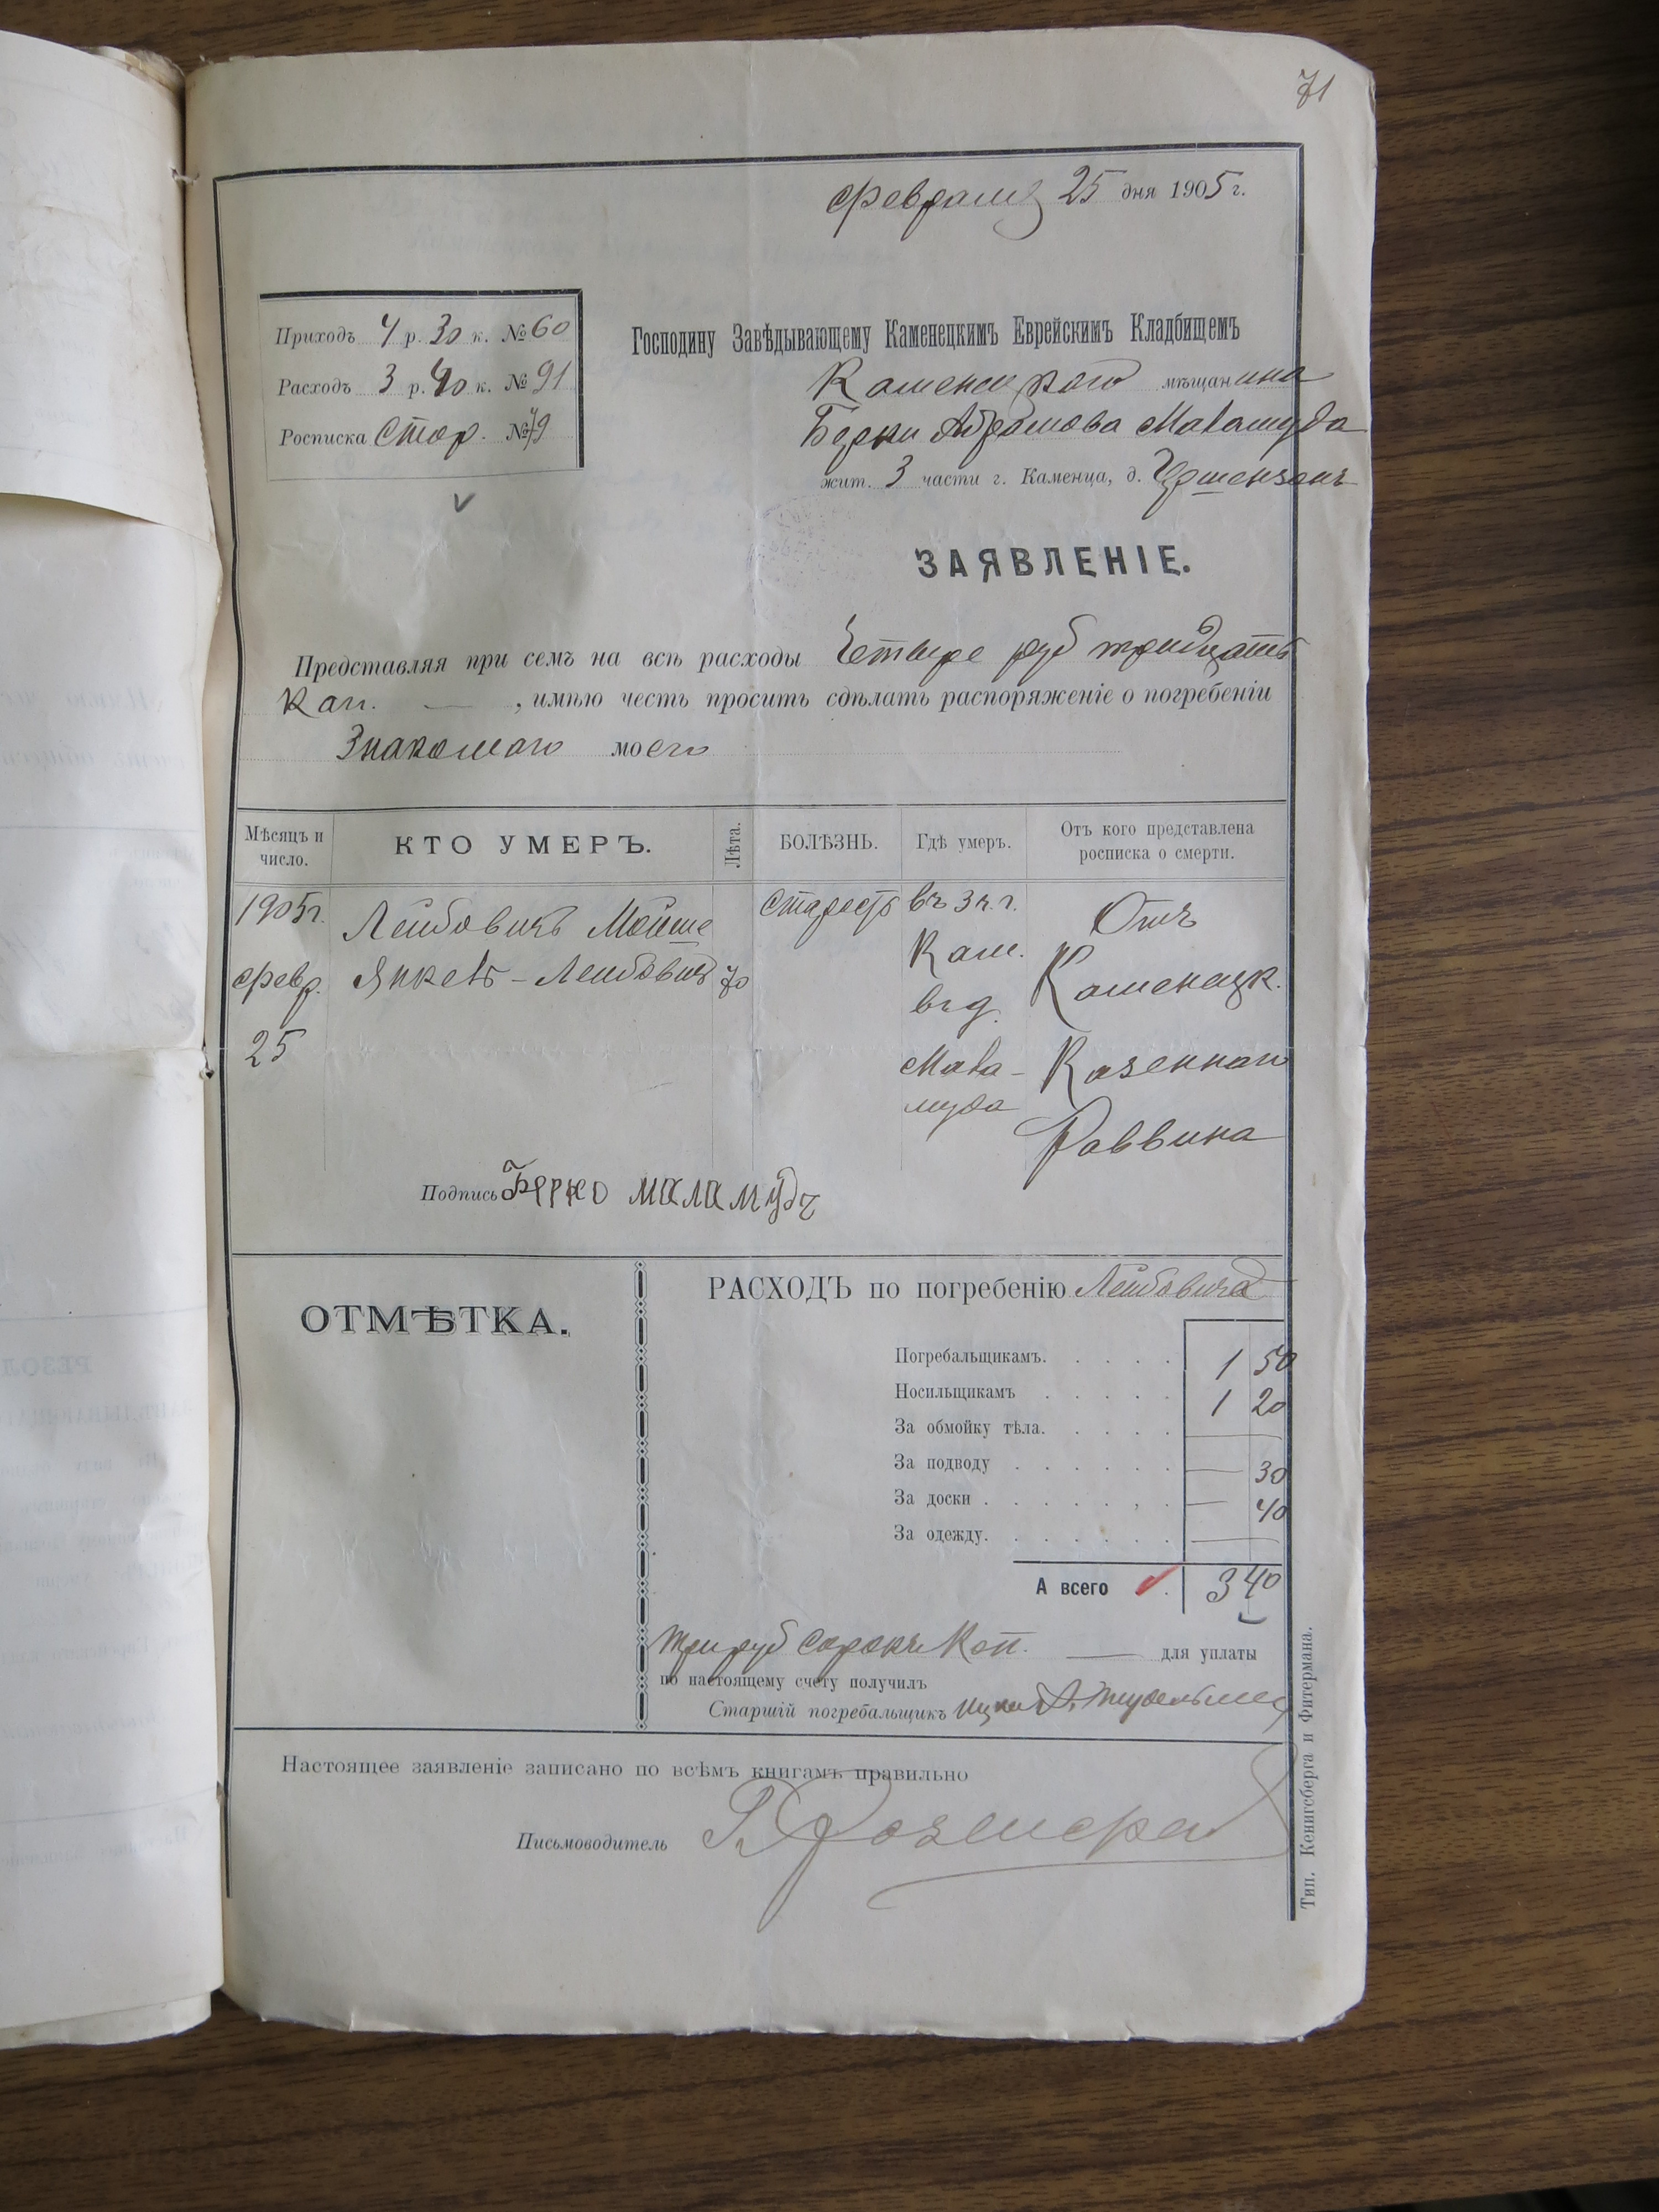 71
Февраля 25 дня 1905 г.
Приходъ 4 р. 30 к. № 60
Расходъ 3 р. 40 к. № 91
Росписка стор. № 79
Господину Завѣдывающему Каменецкимъ Еврейскимъ Кладбищемъ
Каменецкаго мѣщанина
Берки Абрамова Маламуда
жит. 3 части г. Каменца, д.
ЗАЯВЛЕНІЕ.
Представляя при семъ на всѣ расходы Четыре руб тридцать
Коп. — , имѣю честь просить сдѣлать распоряженіе о погребеніи
Знакомаго моего
Мѣсяцъ и число.
КТО УМЕРЪ.
Лѣта.
БОЛѢЗНЬ.
Гдѣ умеръ.
Отъ кого представлена росписка о смерти.
1905 г. февр. 25
Лейбовичъ Мойше
Янкель-Лейбовичъ
70
Старость
въ 3 ч. г. Кам. въ д. Маламуда
Отъ Каменецк. Казеннаго Раввина
Подпись Берко маламудъ
ОТМѢТКА.
РАСХОДЪ по погребенію Лейбовича
Погребальщикамъ. 1 50
Носильщикамъ 1 20
За обмойку тѣла. —
За подводу — 30
За доски — 40
За одежду. —
А всего 3 40
Три руб сорокъ Коп. — для уплаты
по настоящему счету получилъ
Старшій погребальщикъ
Настоящее заявленіе записано по всѣмъ книгамъ правильно
Письмоводитель
Тип. Кенигсберга и Фитермана.